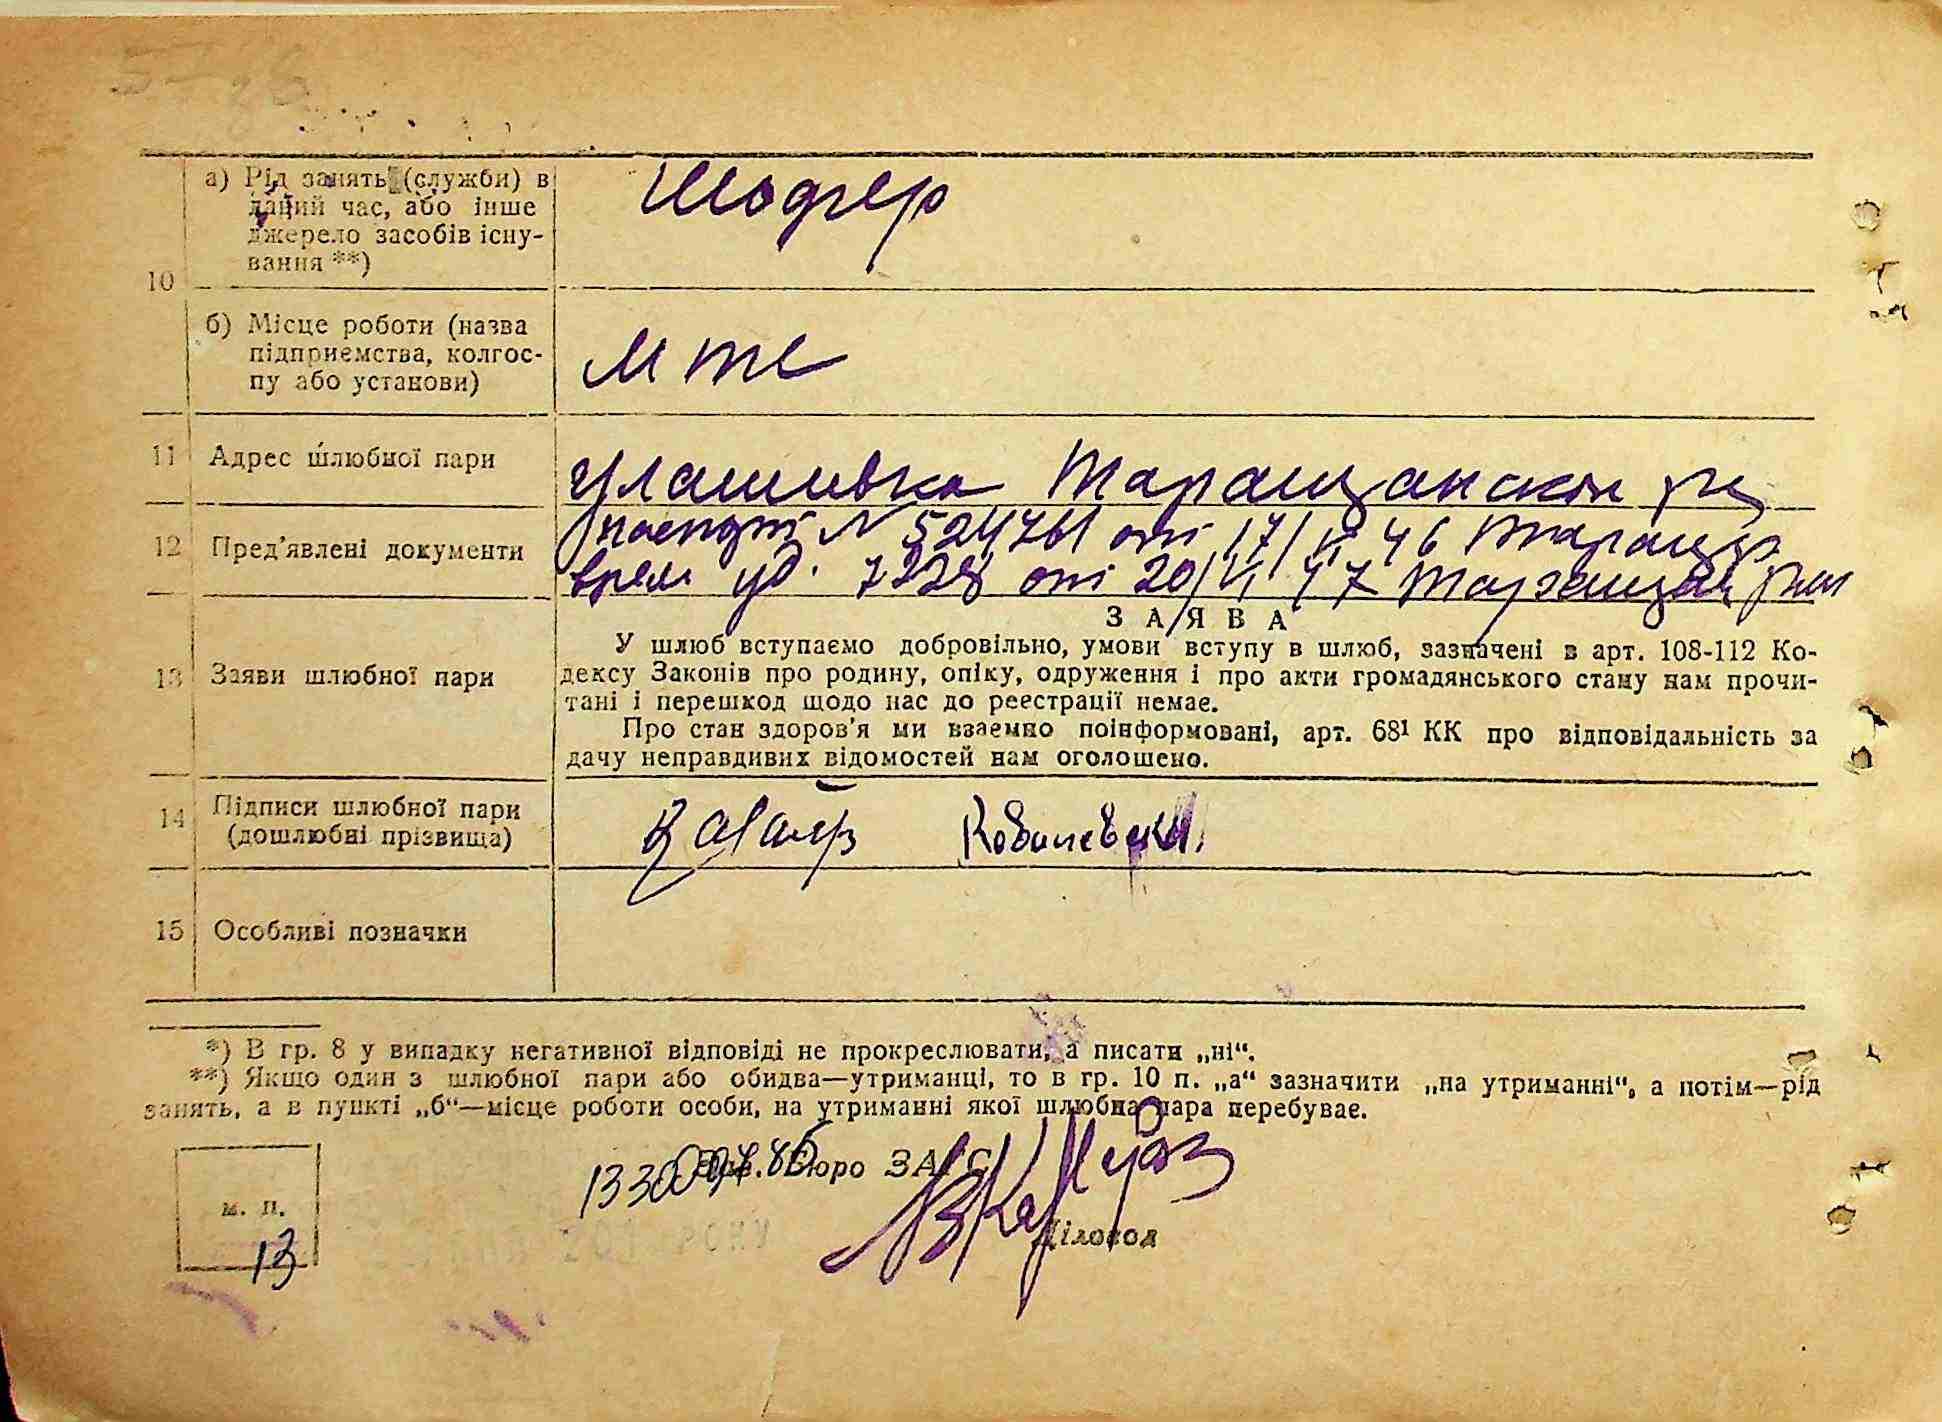 а) Рід занять (служби) в
даний час, або інше
джерело засобів існу-
вання **)
Шофер
10
б) Місце роботи (назва
підприємства, колгос-
пу або установи)
МТС
11 Адрес шлюбної пари
Улашивка Таращанского р-ну
12 Пред'явлені документи
паспорт № 524761 от 17/ 46
врем уд. 7228 от 20/VI 47
З А Я В А
13 Заяви шлюбної пари
У шлюб вступаємо добровільно, умови вступу в шлюб, зазначені в арт. 108-112 Ко-
дексу Законів про родину, опіку, одруження і про акти громадянського стану нам прочи-
тані і перешкод щодо нас до реєстрації немає.
Про стан здоров'я ми взаємно поінформовані, арт. 68¹ КК про відповідальність за
дачу неправдивих відомостей нам оголошено.
14 Підписи шлюбної пари
(дошлюбні прізвища)
15 Особливі позначки
*) В гр. 8 у випадку негативної відповіді не прокреслювати, а писати „ні“.
**) Якщо один з шлюбної пари або обидва—утриманці, то в гр. 10 п. „а“ зазначити „на утриманні“, а потім—рід
занять, а в пункті „б“—місце роботи особи, на утриманні якої шлюбна пара перебуває.
Зав. Бюро ЗАГС
м. п.
Діловод
13